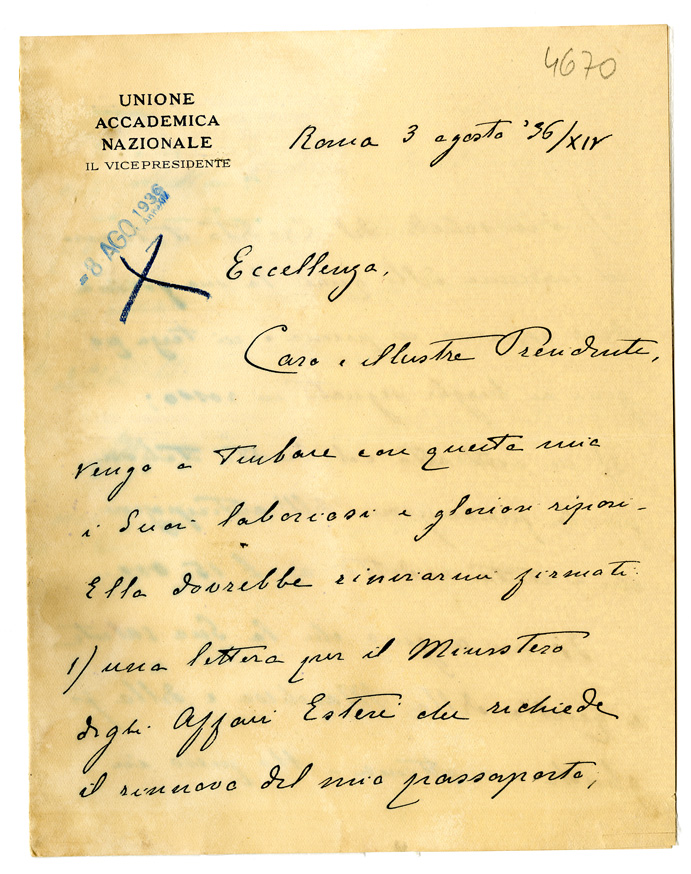 4670
UNIONE
ACCADEMICA
NAZIONALE
IL VICEPRESIDENTE
Roma 3 agosto '36/XIV
-8 AGO. 1936
Eccellenza,
Caro e illustre Presidente,
vengo a turbare con questa mia
i Suoi laboriosi e gloriosi riposi.
Ella dovrebbe rinviarmi firmati
1) una lettera per il Ministero
degli Affari Esteri che richiede
il rinnovo del mio passaporto,